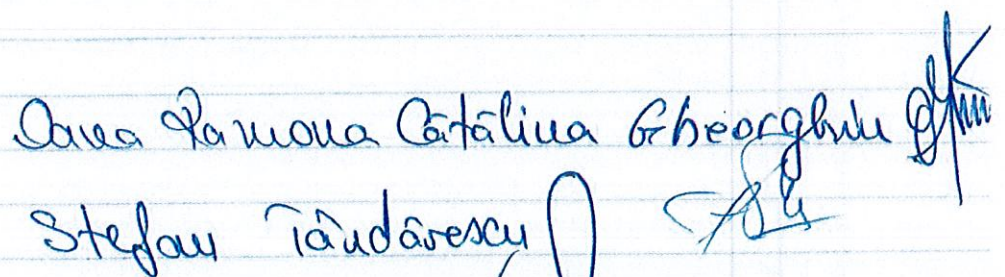 Oana Ramona Cătălina Gheorghiu
Stefan Tăndărescu